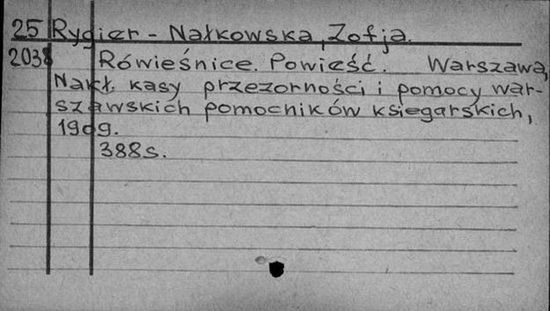 25 Rygier - Nałkowska, Zofja.
2038 Rówieśnice. Powieść. Warszawa,
Nakł. kasy przezorności i pomocy war-
szawskich pomocników księgarskich,
1909.
388s.